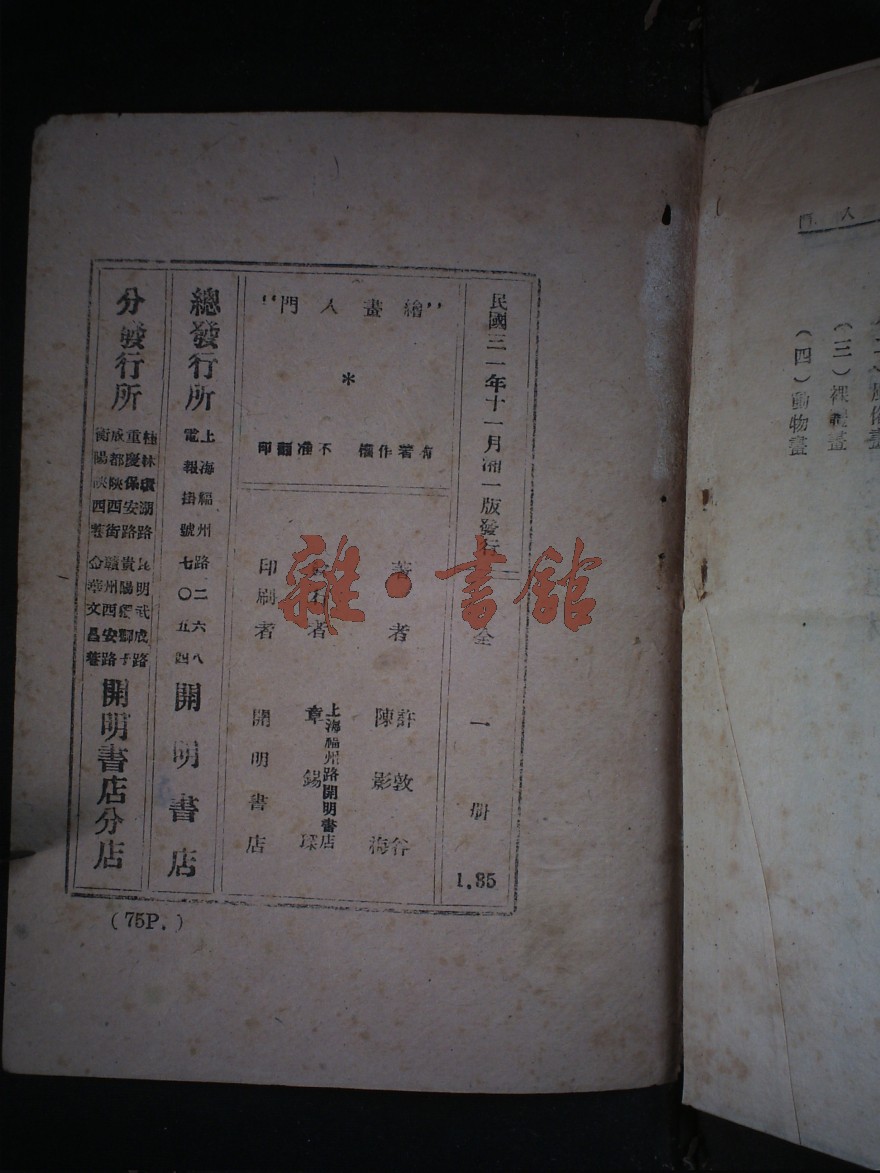 民國三一年十一月湘一版發行
全一册
1.85
"繪畫入門"
*
有著作權 不准翻印
著者
許敦谷
陳影梅
者
上海福州路開明書店
章錫琛
印刷者
開明書店
總發行所
上海福州路二六八
電報掛號七〇五四
開明書店
分發行所
桂林環湖路 昆明武成路
重慶保安路 貴陽獅子路
成都陝西街 贛州西安路
衡陽陝西巷 金華文昌巷
開明書店分店
(75P.)
入門
(三)裸體畫
(四)動物畫
雜·書館